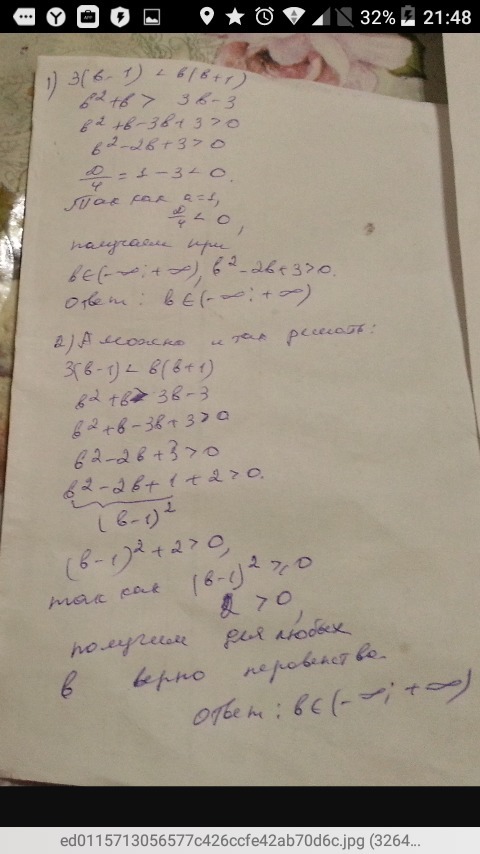 32% 21:48
1) 3(в-1) < в(в+1)
в²+в > 3в-3
в²+в-3в+3>0
в²-2в+3>0
D/4 = 1-3<0.
Так как a=1,
D/4 < 0,
получаем при
в∈(-∞; +∞), в²-2в+3>0.
Ответ: в∈(-∞; +∞)
2) А можно и так решать:
3(в-1) < в(в+1)
в²+в > 3в-3
в²+в-3в+3>0
в²-2в+3>0
в²-2в+1+2>0.
(в-1)²
(в-1)²+2>0,
так как (в-1)²≥0
2>0,
получим для любых
в верно неравенство.
Ответ: в∈(-∞; +∞)
ed0115713056577c426ccfe42ab70d6c.jpg (3264...